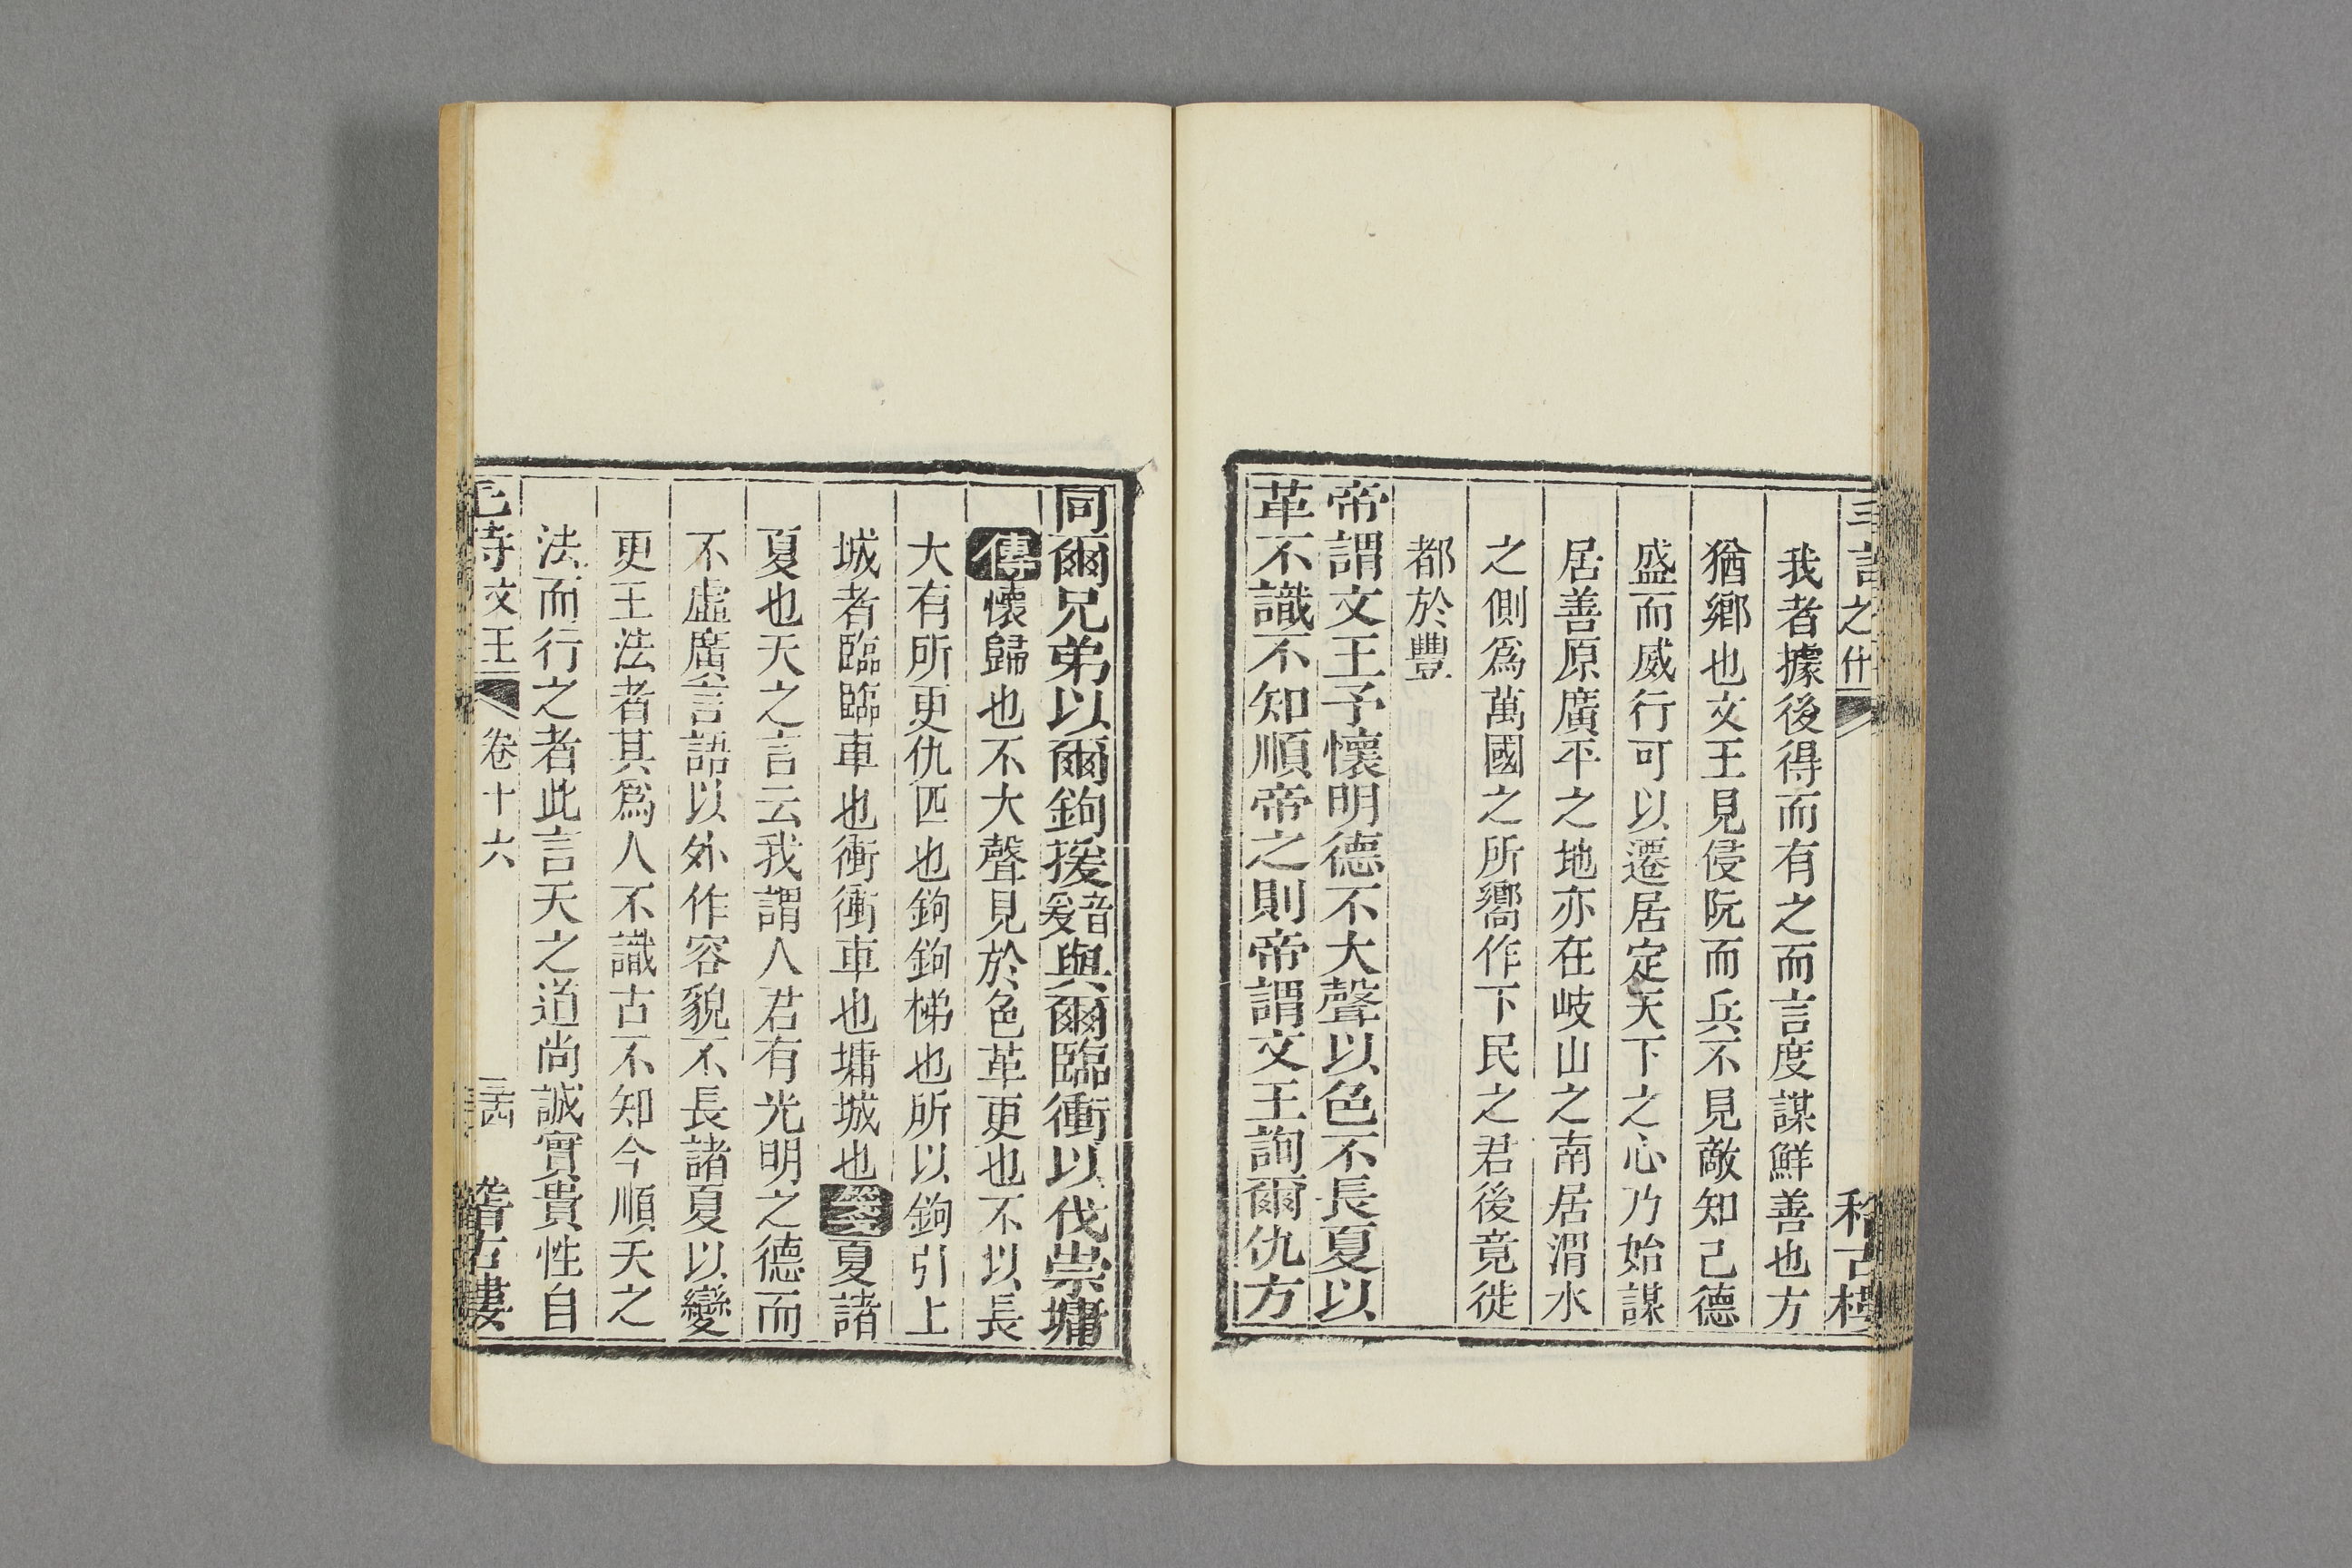 之什
我者據後得而有之而言度謀鮮善也方
猶鄉也文王見侵阮而兵不見敵知己德
盛而威行可以遷居定天下之心乃始謀
居善原廣平之地亦在岐山之南居渭水
之側爲萬國之所嚮作下民之君後竟徙
都於豐
帝謂文王予懷明德不大聲以色不長夏以
革不識不知順帝之則帝謂文王詢爾仇方
同爾兄弟以爾鉤援音爰與爾臨衝以伐崇墉
傳懷歸也不大聲見於色革更也不以長
大有所更仇匹也鉤鉤梯也所以鉤引上
城者臨臨車也衝衝車也墉城也箋夏諸
夏也天之言云我謂人君有光明之德而
不虛廣言語以外作容貌不長諸夏以變
更王法者其爲人不識古不知今順天之
法而行之者此言天之道尚誠實貴性自
詩文王 卷十六